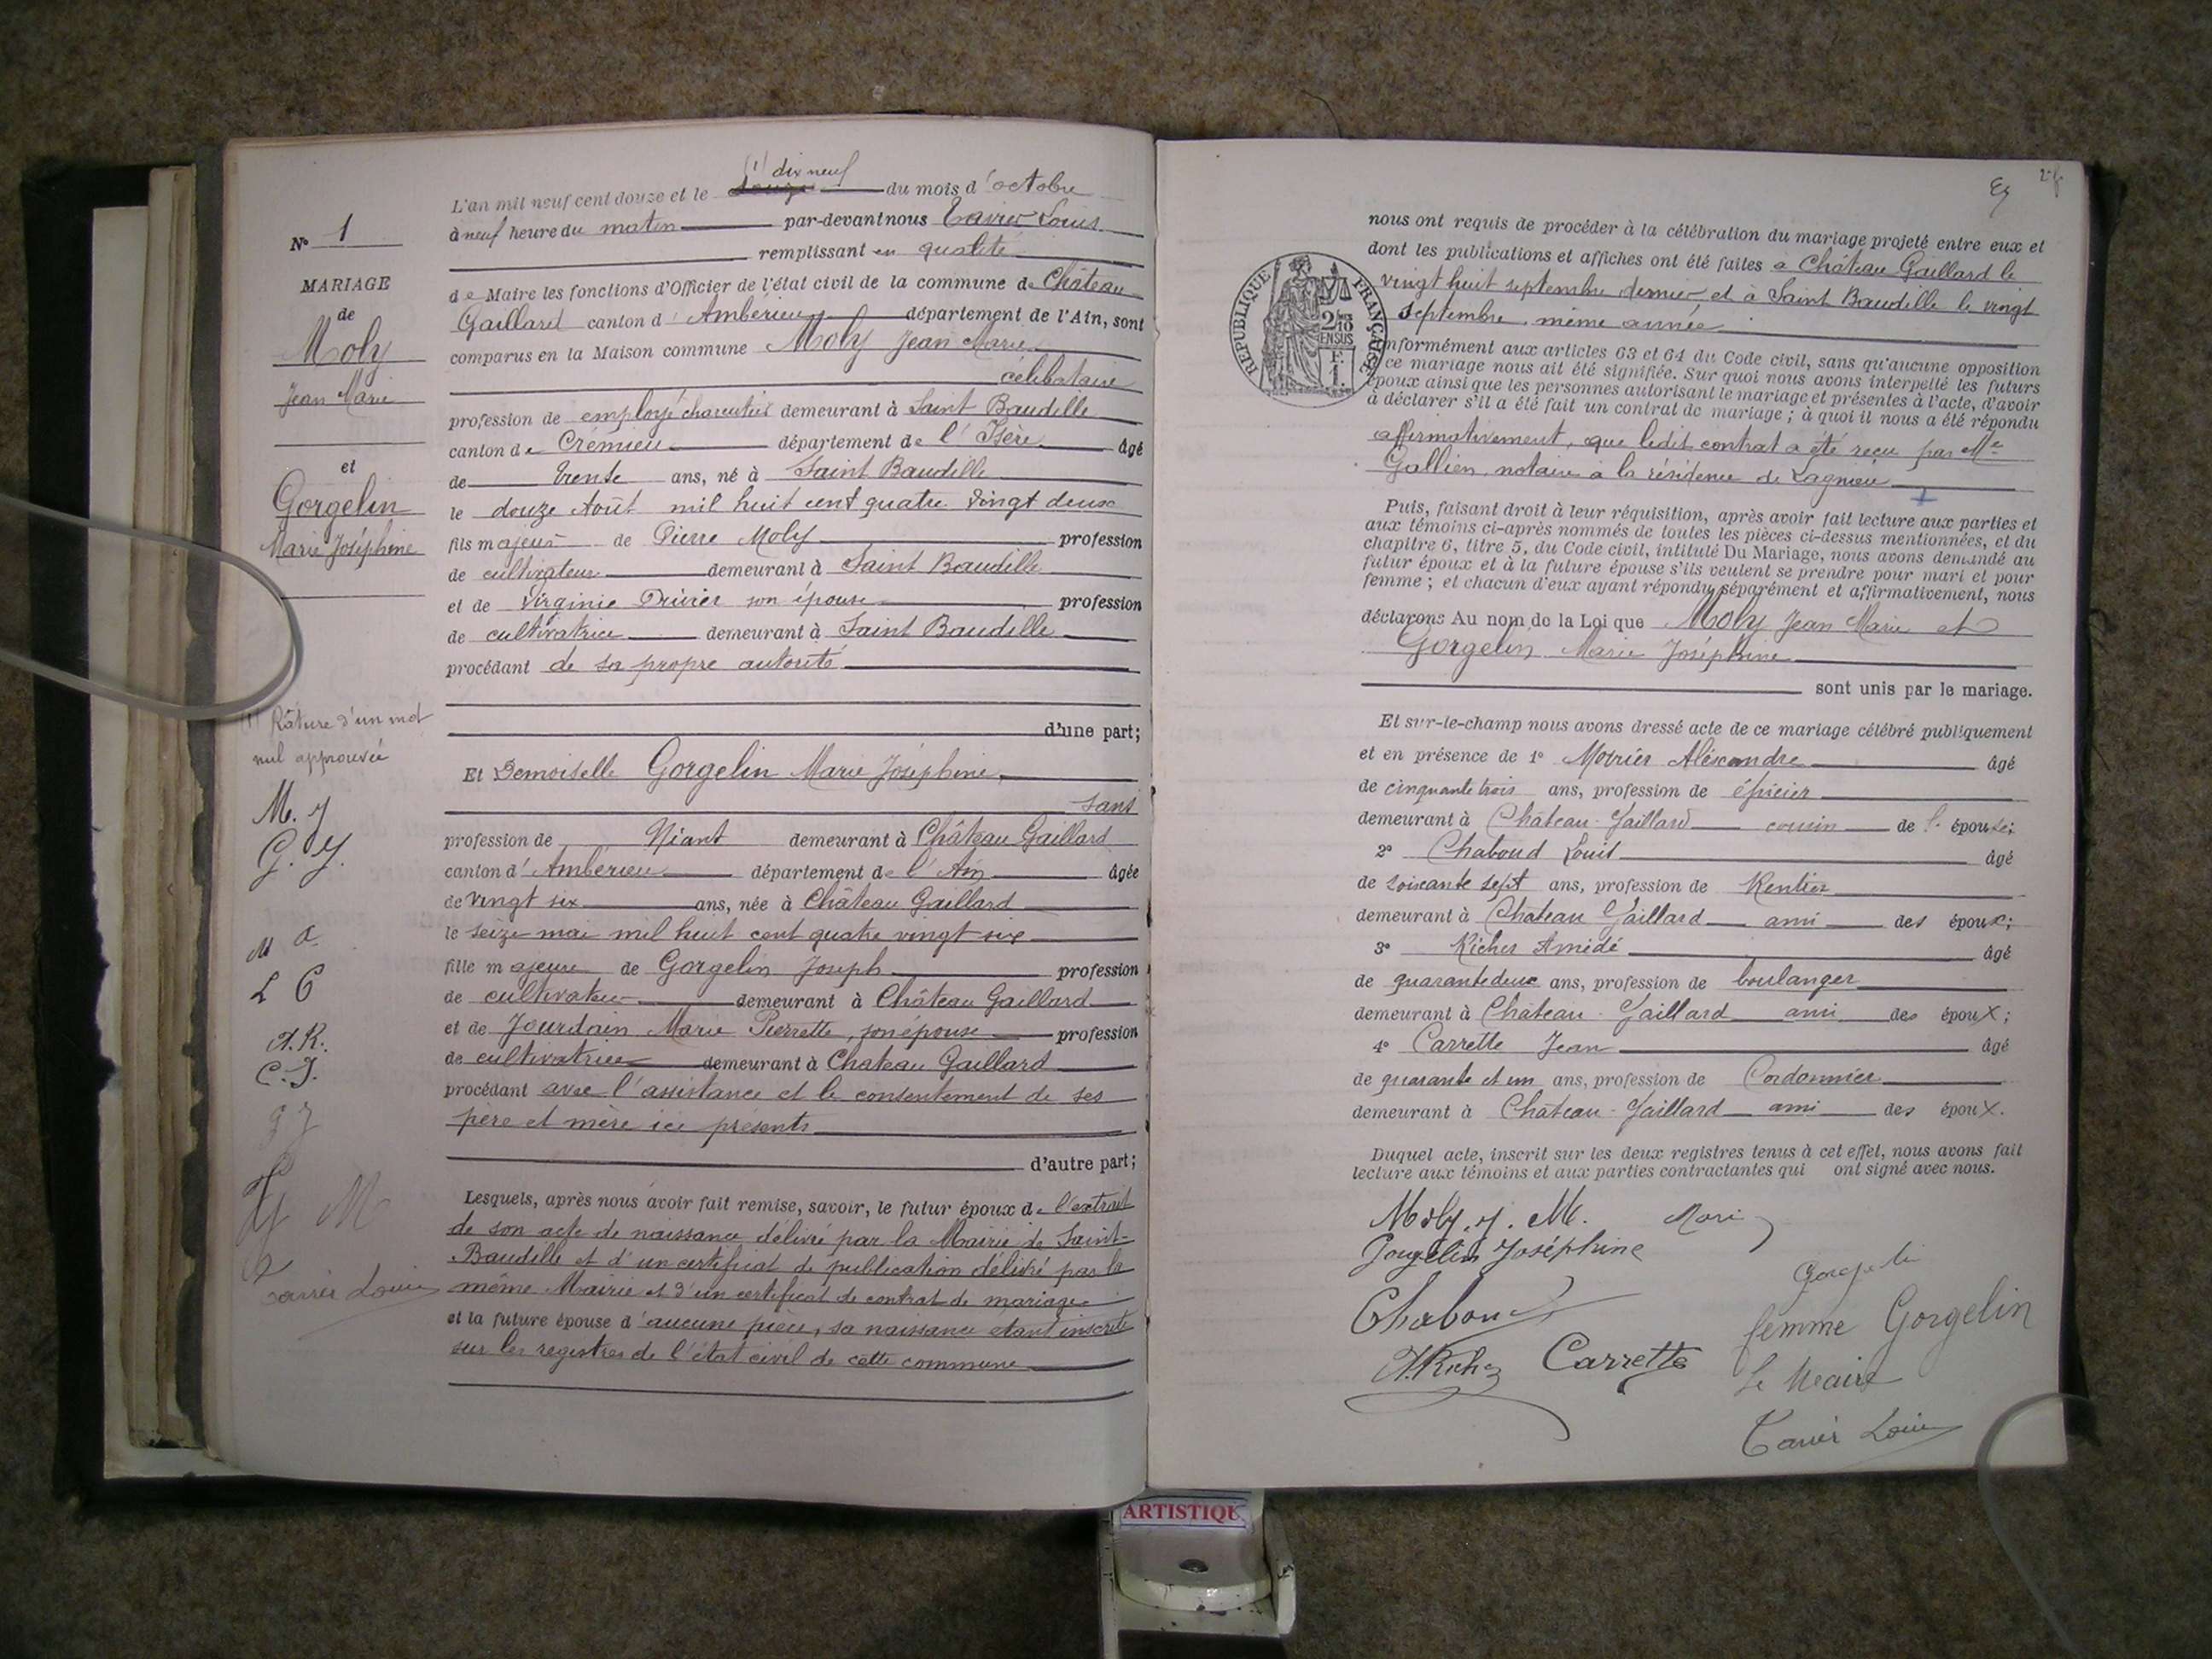 N° 1
MARIAGE
de
Moly
Jean Marie
et
Gorgelin
Marie Joséphine
(1) Râture d'un mot
nul approuvée
M. J
G. J.
M A
L C
A. R.
C. J.
G J
Tavier Louis
(1) dix neuf
L'an mil neuf cent douze et le douze du mois d'octobre
à neuf heure du matin par-devant nous Tavier Louis
remplissant en qualité
de Maire les fonctions d'Officier de l'état civil de la commune de Château
Gaillard canton d'Ambérieu département de l'Ain, sont
comparus en la Maison commune Moly Jean Marie,
célibataire
profession de employé charcutier demeurant à Saint Baudille
canton de Crémieu département de l'Isère âgé
de trente ans, né à Saint Baudille
le douze Août mil huit cent quatre vingt deux
fils majeur de Pierre Moly profession
de cultivateur demeurant à Saint Baudille
et de Virginie son épouse profession
de cultivatrice demeurant à Saint Baudille
procédant de sa propre autorité
d'une part;
Et Demoiselle Gorgelin Marie Joséphine,
sans
profession de Néant demeurant à Château Gaillard
canton d'Ambérieu département de l'Ain âgée
de vingt six ans, née à Château Gaillard
le seize mai mil huit cent quatre vingt six
fille majeure de Gorgelin Joseph profession
de cultivateur demeurant à Château Gaillard
et de Jourdain Marie Pierrette, son épouse profession
de cultivatrice demeurant à Chateau Gaillard
procédant avec l'assistance et le consentement de ses
père et mère ici présents
d'autre part;
Lesquels, après nous avoir fait remise, savoir, le futur époux de l'extrait
de son acte de naissance délivré par la Mairie de Saint-
Baudille et d'un certificat de publication délivré par la
même Mairie et d'un certificat de contrat de mariage
et la future épouse d'aucune pièce, sa naissance étant inscrite
sur les registres de l'état civil de cette commune
nous ont requis de procéder à la célébration du mariage projeté entre eux et
dont les publications et affiches ont été faites à Château Gaillard le
vingt huit septembre dernier et à Saint Baudille le vingt
septembre même année
RÉPUBLIQUE FRANÇAISE
2/10
EN SUS
1 F.
nformément aux articles 63 et 64 du Code civil, sans qu'aucune opposition
ce mariage nous ait été signifiée. Sur quoi nous avons interpellé les futurs
époux ainsi que les personnes autorisant le mariage et présentes à l'acte, d'avoir
à déclarer s'il a été fait un contrat de mariage ; à quoi il nous a été répondu
affirmativement, que ledit contrat a été reçu par Me
Gallien, notaire à la résidence de Lagnieu
Puis, faisant droit à leur réquisition, après avoir fait lecture aux parties et
aux témoins ci-après nommés de toutes les pièces ci-dessus mentionnées, et du
chapitre 6, titre 5, du Code civil, intitulé Du Mariage, nous avons demandé au
futur époux et à la future épouse s'ils veulent se prendre pour mari et pour
femme ; et chacun d'eux ayant répondu séparément et affirmativement, nous
déclarons Au nom de la Loi que Moly Jean Marie et
Gorgelin Marie Joséphine
sont unis par le mariage.
Et sur-le-champ nous avons dressé acte de ce mariage célébré publiquement
et en présence de 1° Alexandre âgé
de cinquante trois ans, profession de épicier
demeurant à Château-Gaillard cousin de l'épouse;
2° Chaboud Louis âgé
de soixante sept ans, profession de Rentier
demeurant à Château Gaillard ami des époux;
3° Richer Amédé âgé
de quarante deux ans, profession de boulanger
demeurant à Château-Gaillard ami des époux;
4° Carrette Jean âgé
de quarante et un ans, profession de Cordonnier
demeurant à Château-Gaillard ami des époux.
Duquel acte, inscrit sur les deux registres tenus à cet effet, nous avons fait
lecture aux témoins et aux parties contractantes qui ont signé avec nous.
Moly. J. M.
Gorgelin Joséphine
Chaboud
Gorgelin
femme Gorgelin
A. Richer Carrette
Le Maire
Tavier Louis
ARTISTIQU